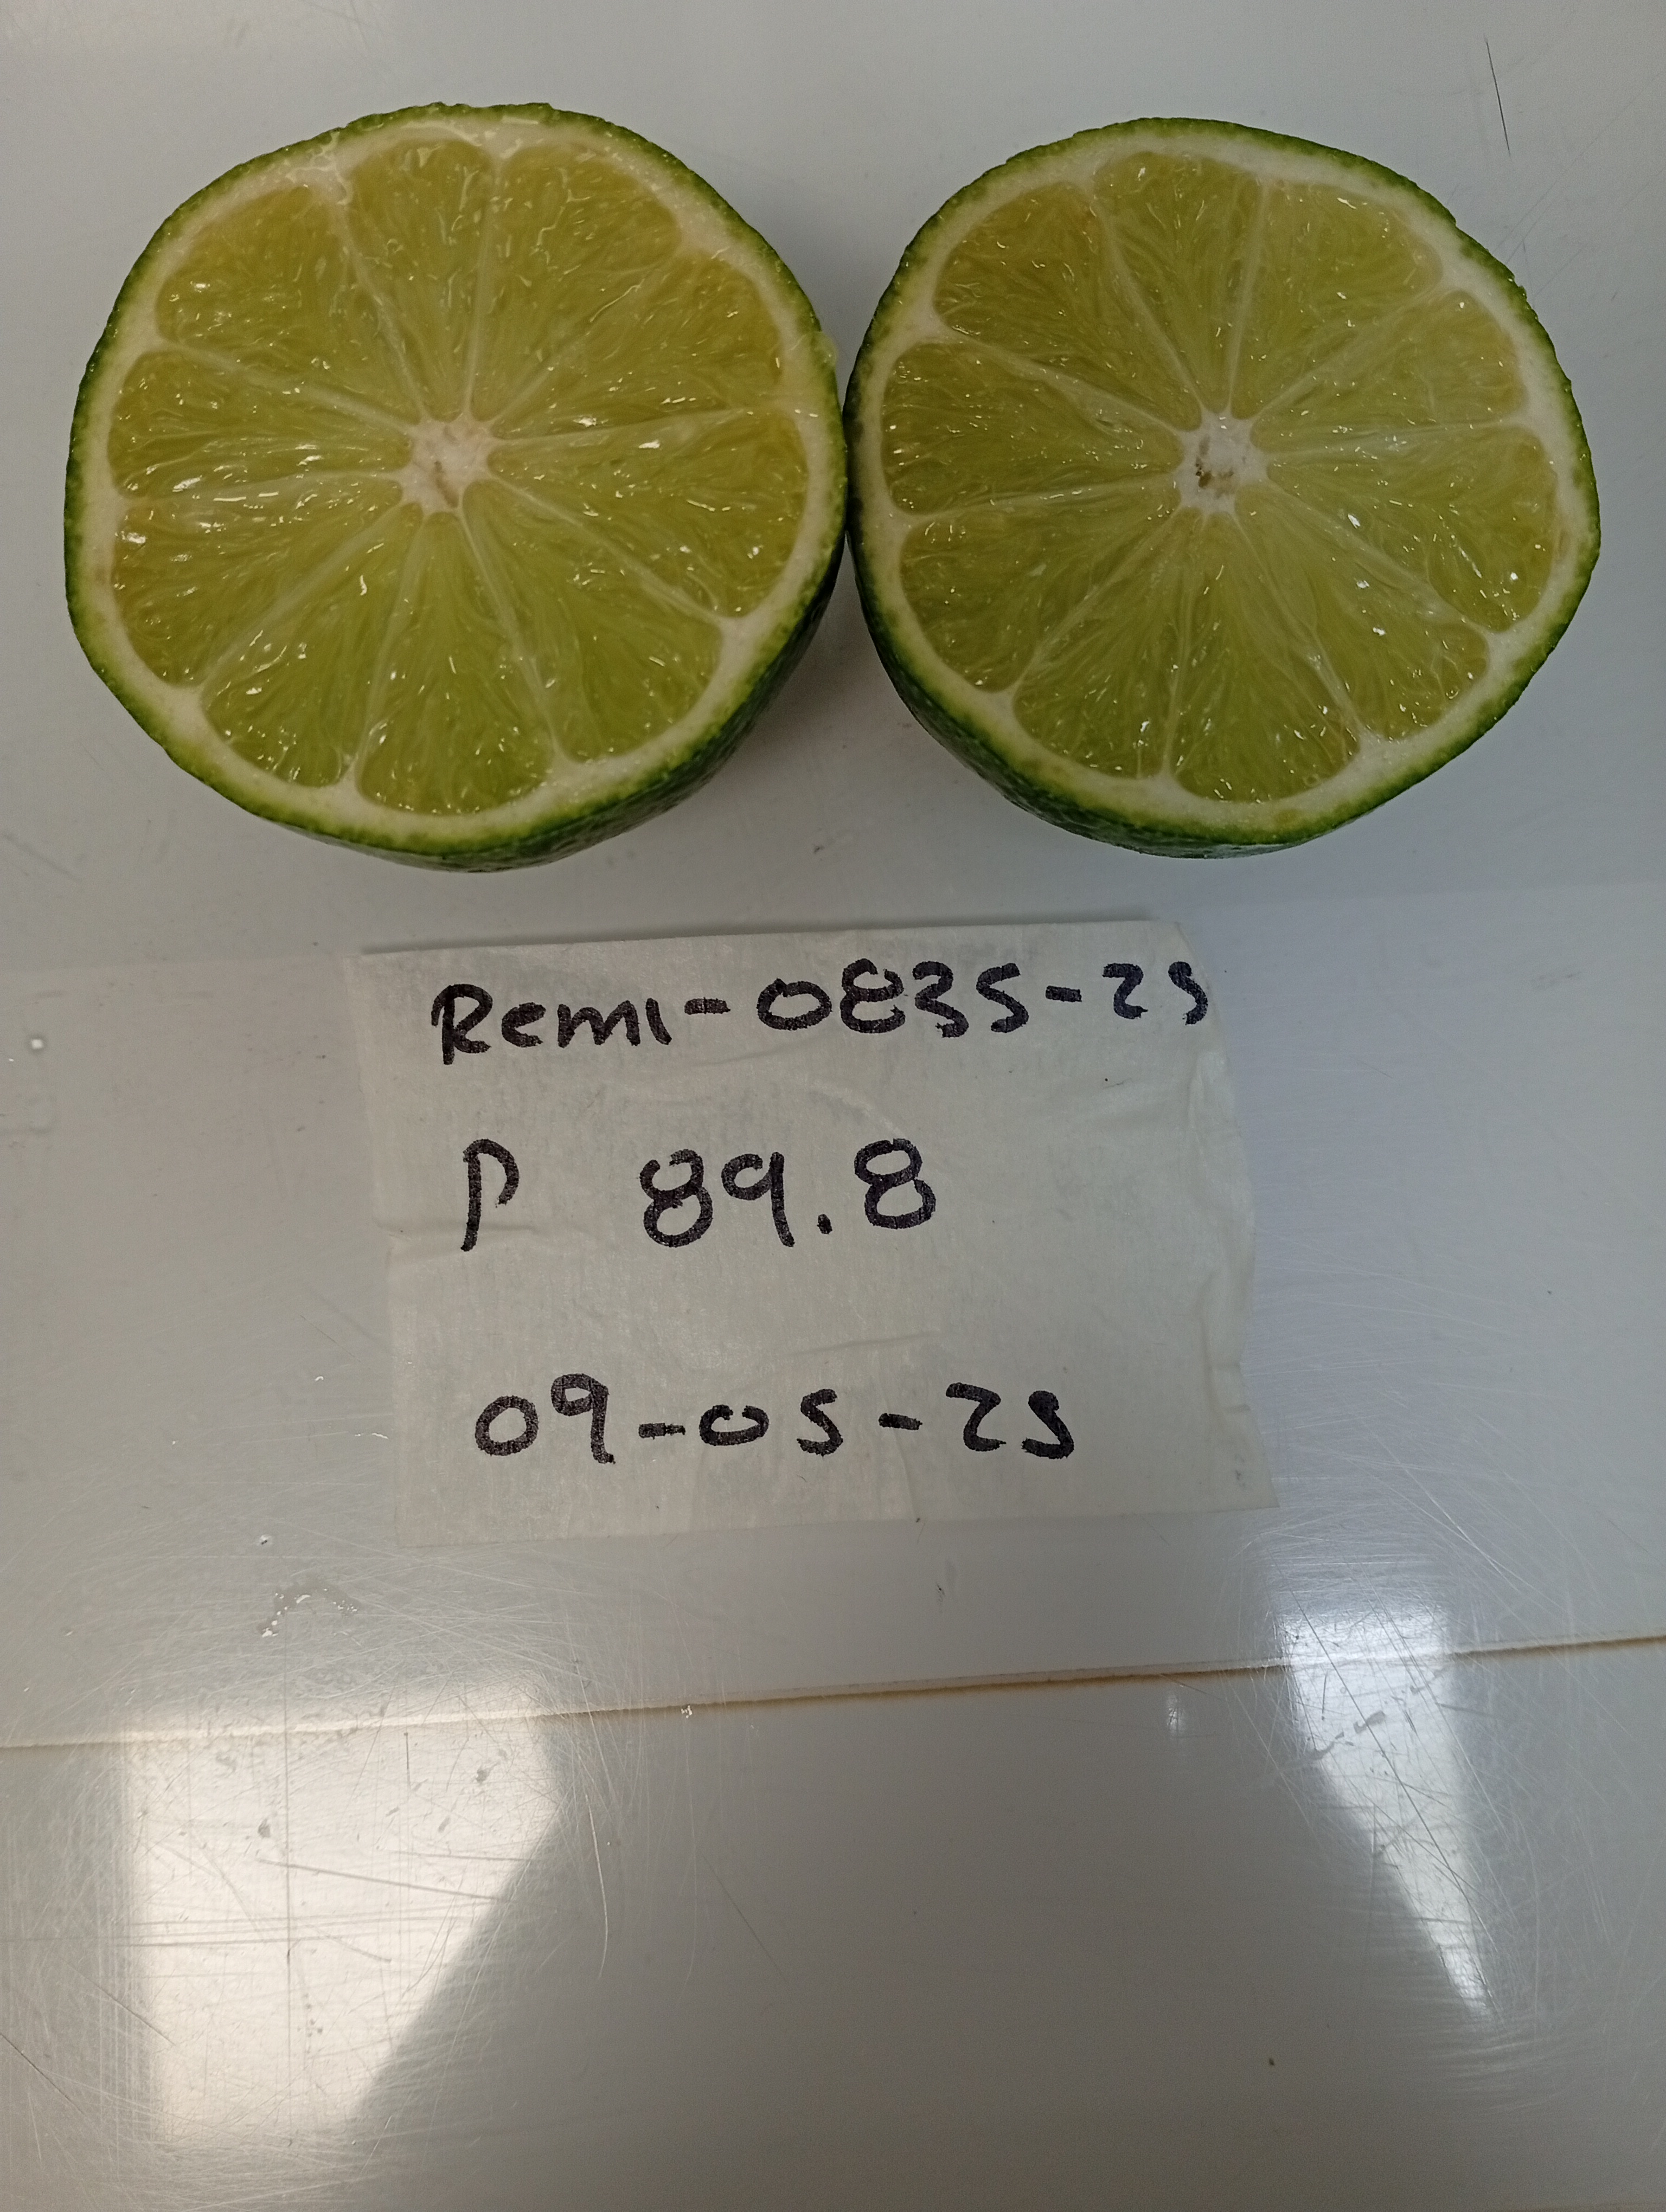 Remi-0835-25
P 89.8
09-05-25